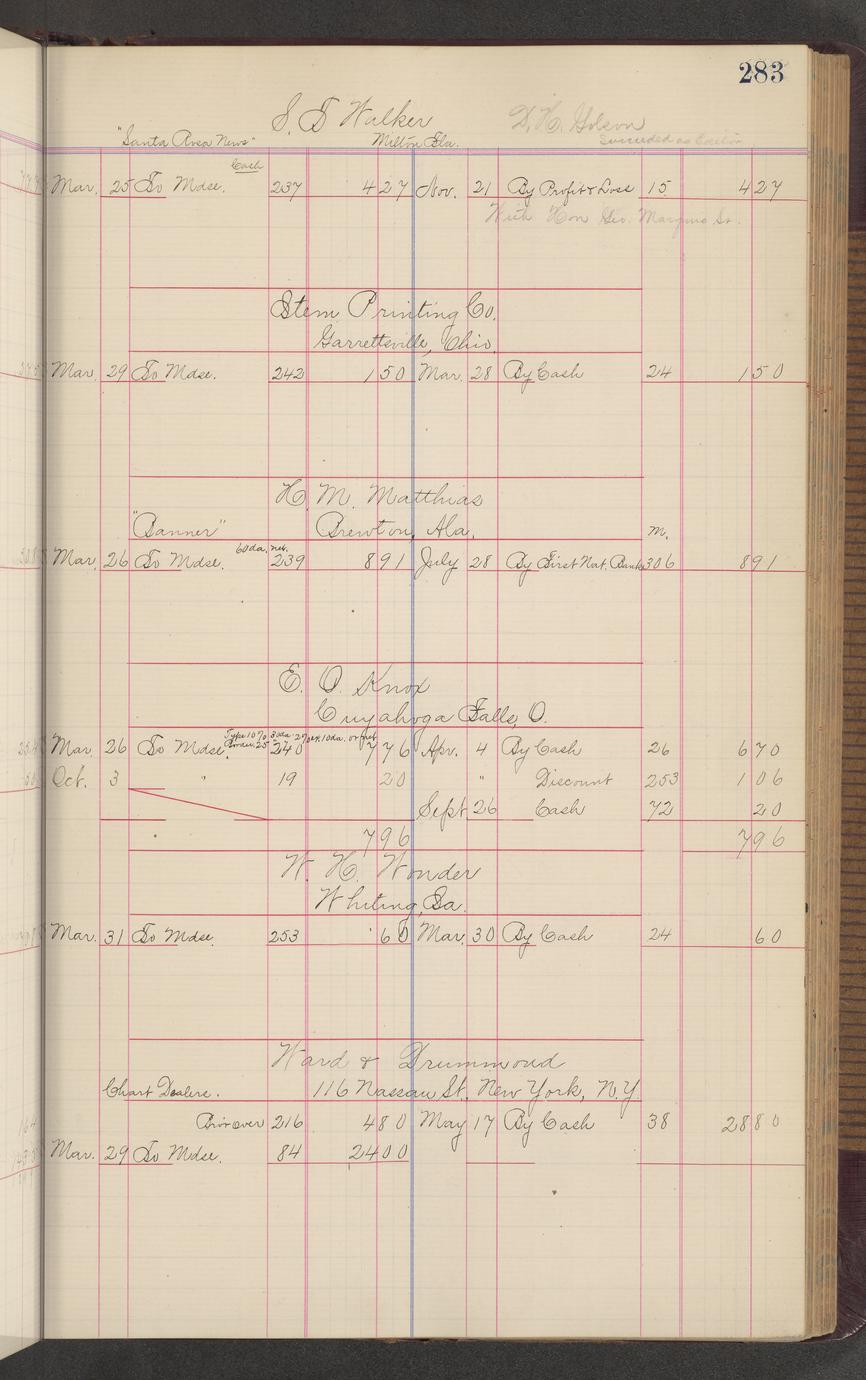 283
S. T. Walker D. H. Golson
"Santa Rosa News" Milton Fla. Succeeded as Editor
Cash
Mar. 25 To Mdse. 237 4 27 Nov. 21 By Profit & Loss 15 4 27
With Hon Geo. Marquis Sr.
Stem Printing Co.
Garrettsville, Ohio,
Mar. 29 To Mdse. 242 1 50 Mar. 28 By Cash 24 1 50
H. M. Matthias
"Banner" Brewton, Ala. M.
60 da. net.
Mar. 26 To Mdse. 239 8 91 July 28 By First Nat. Bank 306 8 91
E. O. Knox
Cuyahoga Falls, O.
Type 10% 30 da. 2% 10 da. or net
Border 25
Mar. 26 To Mdse. 240 7 76 Apr. 4 By Cash 26 6 70
Oct. 3 " 19 20 " Discount 253 1 06
Sept 26 Cash 72 20
7 96 7 96
W. H. Wonder
Whiting, Ia.
Mar. 31 To Mdse. 253 60 Mar. 30 By Cash 24 60
Ward & Drummond
Chart Dealers. 116 Nassau St., New York, N.Y.
216 4 80 May 17 By Cash 38 28 80
Mar. 29 To Mdse. 84 24 00